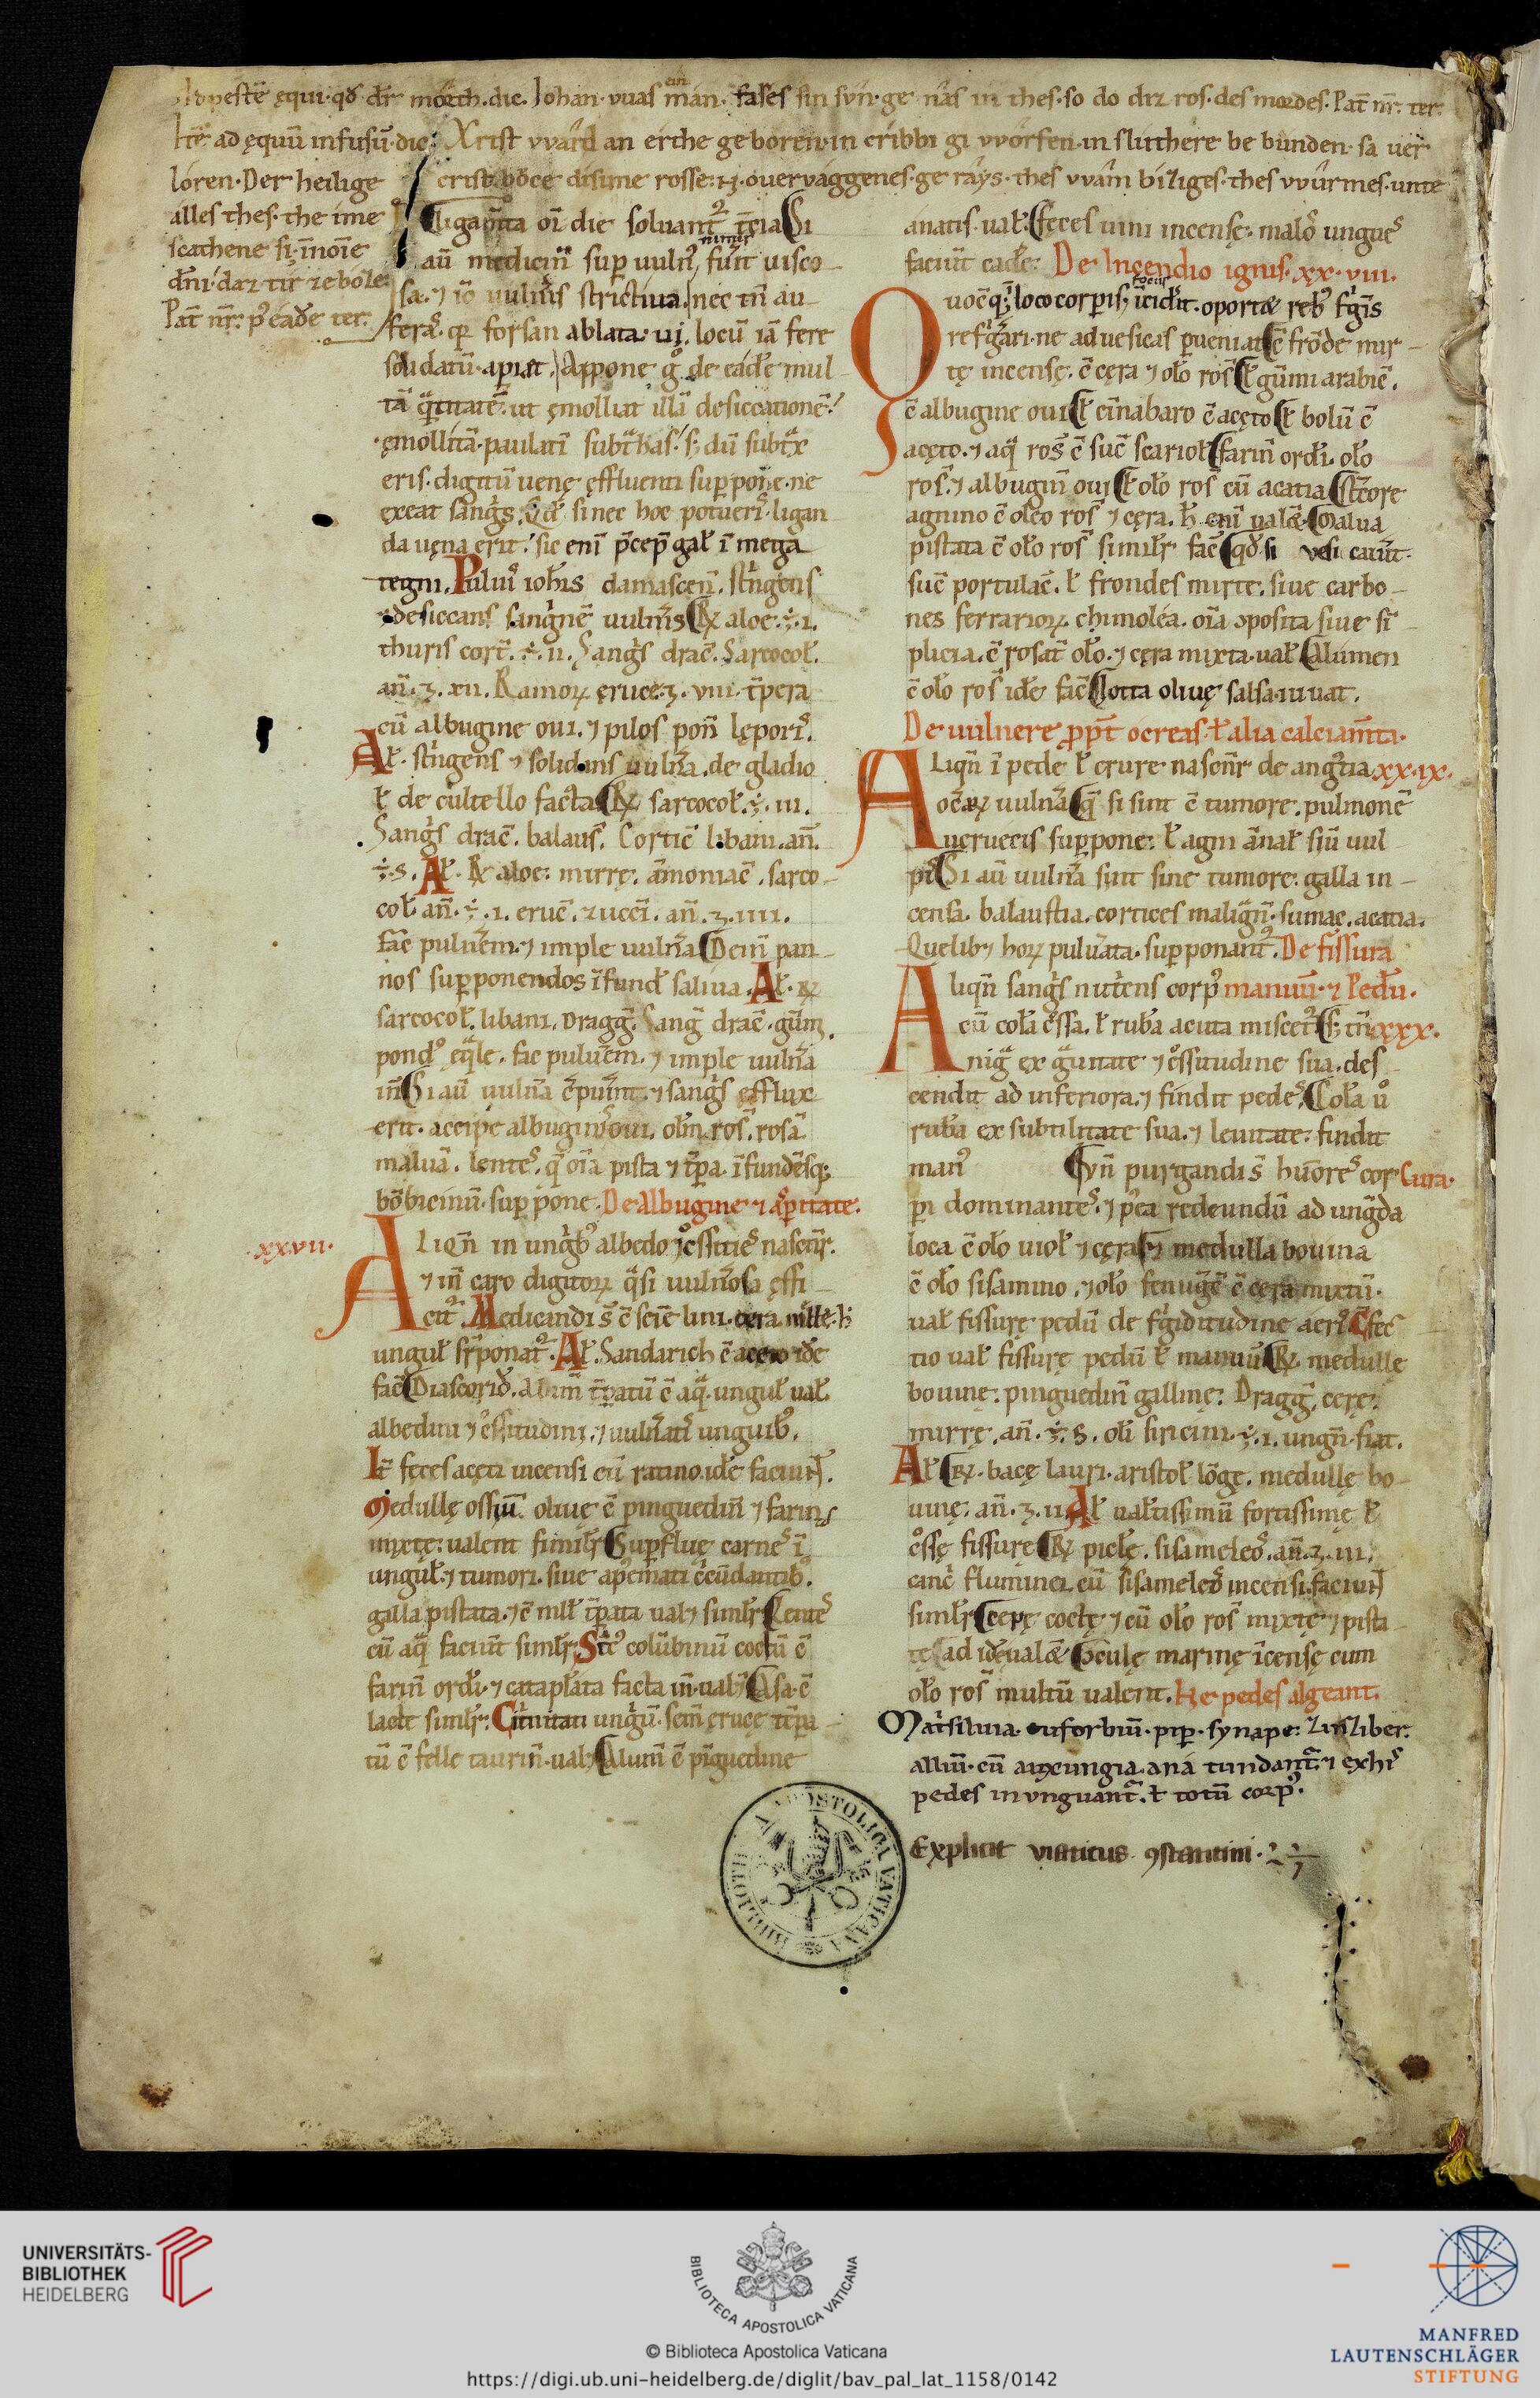 Ad pestē ęqui· qđ dr̄ morth. dic. Johan· vuas ein man. fases sin svn· ge nas in thes· so do drz ros· des mordes· Pat̄ nr̄· ter.
Itē ad ęquū infusū· dic: Xrist vvard an erthe geboren· in cribbi gi vvorfen· in slithere be bunden· sa uer
loren· Der heilige crist bôce disime rosse: ouervaggenes· ge raẏs· thes vvâm biziges· thes vvûrmes· unte
alles thes· the ime
scathene si· īnoīe
dn̄i· daz tir ze bôze:
Pat̄ nr̄: pꝰ eād̄e ter.
ligam̄ta
aū medicin̄ sup uulnꝰ nimis fūīt uisco
sæ· ⁊ iō uulnīs strictiua. nec tn̄ au
feras̄ q forsan ablata: ui· locū iā fere
solidatū· apiat. Appone g° de eādē mul
tā q̄ntitatē: ut ęmolliat illā desiccationē:
ęmollitā· paulatī subt̄has· s; dū subtx̄
eris· digitū uenę effluenti suppone· ne
exeat sangīs. Qđ si nec hoc potueris̄· ligan
da uęna erit: sic enī p̄cep̄ gał ī mega
tegni. Puluꝰ ioh̄is damascen̄. stīgens
⁊ desiccans sangnē uuln̄is ℞ aloe· ℥· i.
thuris cort̄. ℥. ii. Sangīs drac̄. Sarcocoł.
an̄. ʒ. xii. Ramoꝝ ęruce· ʒ. viii. t̄pera
cū albugine oui. ⁊ pilos pon̄ lęporis̄.
Ał. stīgens ⁊ solidans uuln̄a. de gladio
ł de cultello facta ℞ sarcocoł. ℥. iii.
Sangīs drac̄. balaus̄. Corticē libani. an̄.
℥. s. Ał. ℞ aloe: mirrę. āmoniac̄. sarco
coł an̄. ℥. i. eruc̄. zucc̄i. an̄. ʒ. iiii.
fāc puluēm. ⁊ imple uuln̄a Dein̄ pan
nos supponendos īfund̄ saliua. Ał. ℞
sarcocoł. libani. Dragḡ. Sanḡ drac̄. gūm̄.
pondꝰ eq̄le. fac puluēm. ⁊ imple uuln̄a
in̄ Si aū uuln̄a ⁊ sangīs efflux
erit. accipe albuginē oui. olm̄. ros̄. rosā
maluā. lentes̄. q̄ oīa pista ⁊ t̄pa. īfundēsq;
bōbicinū· suppone. De Albugine ⁊ as̄pitate.
xxvii.
Aliqn̄ in ungībꝰ albedo nascn̄r.
⁊ in̄ caro digitoꝝ q̄si uuln̄osa effi
cit̄. Medicandi s̄ c̄ sem̄ lini. cera. mełle: h̄
unguł sr̄ponat̄. Ał. Sandarich c̄ aceto idē
fac̄ Diascorid̄. Alum̄ t̄patū c̄ aq̄. unguł uał.
albedini ⁊ ⁊ uuln̄atis̄ unguibꝰ.
It̄ feces aceti incensi cū ratino. idē faciunt.
Medullę ossiū. oliuę c̄ pinguedin̄ ⁊ farin̄
mixtę: ualent simił̄r Supfluę carnes̄ ī
unguł. ⁊ tumori. siue apc̄mati c̄cūdantibꝰ.
galla pistata. ⁊ c̄ meł t̄pata ualꝫ simił̄r Lentes̄
cū aq̄ faciūt simił̄r. St̄cꝰ colūbinū coctū c̄
farin̄ ordī. ⁊ catapłata facta in̄. ualꝫ Asa. c̄
lacte simił̄r. Citrinitati ungū. sem̄ ęruce t̄pa
tū c̄ felle taurin̄. ualꝫ Alum̄ c̄ pīguedine
anatis· uał. feces uini incensę: malos̄ ungues̄
faciūt cadē. De Incendio ignis. xx. viii.
Quocq; loco corpis focus īcidit. oportet rebꝰ fīgis
refīgāri· ne ad uesicas pueniat c̄ frōde mir
tę incensę. c̄ cęra ⁊ oło ros̄ ł gūmi arabic̄.
c̄ albugine oui ł cīnabaro c̄ aceto ł bolū c̄
aceto. ⁊ aq̄ ros̄ c̄ suc̄ scarioł farin̄ ordī. oło
ros̄. ⁊ albugin̄ oui ł oło ros̄ cū acatia St̄core
agnino c̄ oleo ros̄ ⁊ cęra. h̄ enī ualet Malua
pistata c̄ oło ros̄ simił̄r fac̄ qđ si vesicaū̄t.
suc̄ portulac̄. ł frondes mirte. siue carbo
nes ferrarioꝝ. chimoléa. oīa ꝯposita siue sī
plicia. c̄ rosat̄ oło. ⁊ cęra mixta· uał Alumen
c̄ oło ros̄ idē fac̄ Lotta oliuę salsa. iuuat.
De uulnere ppt̄ ocreas· ł alia calciam̄ta.
Aliqn̄ ī pede ł crure nascn̄r de angꝰtia xx. ix.
uuln̄a q̄ si sint c̄ tumore: pulmonē
ueruecis suppone: ł agni siū uul
pis̄ Si aū uuln̄a sint sine tumore: galla in
censa. balaustia. cortices maligīn. sumac. acatia.
Quęlibꝫ hoꝝ puluata· supponant̄. De fissura
Aliqn̄ sangīs nutīens corpꝰ manuū. ⁊ Pedū.
cū coła ł rubā acuta miscet̄ S; tn̄ xxx.
nigā ex gāuitate ⁊ sua. des
cendit ad inferiora. ⁊ findit pedes̄. Coła ů
rubā ex subtilitate sua. ⁊ leuitate: findit
manꝰ Cyn̄ purgandi s̄ hūores̄ cor Cura.
pi dominantes̄. ⁊ pꝰea redeundū ad ungda
loca c̄ oło uioł ⁊ cęra medulla bouina
c̄ oło sisamino. ⁊ oło fenug̃c̄ c̄ cera mixtū.
uał fissurę pedū de fīgiditudine aerꝰ Cfec
tio uał fissurę pedū ł manuū ℞. medullę
bouinę: pinguedin̄ gallinę: Dragḡ. cerę:
mirrę. an̄. ℥. s. olī siricini. ℥. i. ungn̄ fiat.
Ał ℞. bacę lauri. aristoł lōgę. medullę bo
uinę: an̄. ʒ. ii. Ał uałtissimū fortissimę ł
fissurę ℞ sisameleos̄. an̄. ʒ. iii.
cancī fluminei. cū sisameleo incensi. faciunt
simił̄r Cepę coctę ⁊ cū oło ros̄ mixtę ⁊ pista
tę ad idē ualet marinę īcensę cum
oło ros̄ multū ualent. Ne pedes algeant.
Matīsilua. euforbiū. pip. synape: zinziber.
alliū. cū auxcungia. ana tundant̄. ⁊ ex his̄
pedes in vnguant̄. ł totū corpꝰ.
Explicit viaticus ꝯstantini.
BIBLIOTHECA APOSTOLICA VATICANA
UNIVERSITÄTS-
BIBLIOTHEK
HEIDELBERG
BIBLIOTECA APOSTOLICA VATICANA
© Biblioteca Apostolica Vaticana
https://digi.ub.uni-heidelberg.de/diglit/bav_pal_lat_1158/0142
MANFRED
LAUTENSCHLÄGER
STIFTUNG